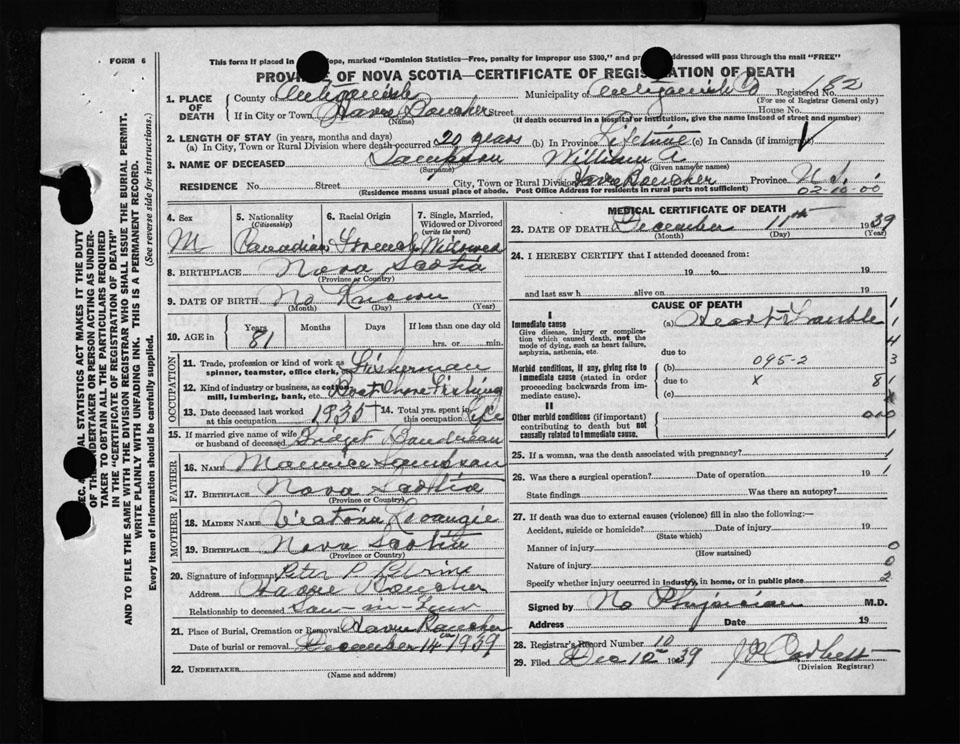 FORM 6
This form if placed in Envelope, marked "Dominion Statistics—Free, penalty for improper use $300," and properly addressed will pass through the mail "FREE"
PROVINCE OF NOVA SCOTIA—CERTIFICATE OF REGISTRATION OF DEATH
Registered No. 182
(For use of Registrar General only)
1. PLACE OF DEATH County of Antigonish Municipality of Antigonish Co
If in City or Town Havre Boucher Street House No.
(Name) (If death occurred in a hospital or institution, give the name instead of street and number)
2. LENGTH OF STAY (in years, months and days)
(a) In City, Town or Rural Division where death occurred 20 years (b) In Province Lifetime (c) In Canada (if immigrant)
3. NAME OF DECEASED Sampson William A.
(Surname) (Given name or names)
RESIDENCE No. Street City, Town or Rural Division Havre Boucher Province N.S.
(Residence means usual place of abode. Post Office Address for residents in rural parts not sufficient) 02-10-00
4. Sex M
5. Nationality (Citizenship) Canadian
6. Racial Origin French
7. Single, Married, Widowed or Divorced (write the word) Widowed
8. BIRTHPLACE Nova Scotia
(Province or Country)
9. DATE OF BIRTH No Known
(Month) (Day) (Year)
10. AGE in Years 81 Months Days If less than one day old
hrs. or min.
OCCUPATION
11. Trade, profession or kind of work as spinner, teamster, office clerk, etc. Fisherman
12. Kind of industry or business, as cotton mill, lumbering, bank, etc. Boat Shore Fishing
13. Date deceased last worked at this occupation 1935 14. Total yrs. spent in this occupation
15. If married give name of wife or husband of deceased Bridget Boudreau
FATHER
16. NAME Maurice Sampson
17. BIRTHPLACE Nova Scotia
(Province or Country)
MOTHER
18. MAIDEN NAME
19. BIRTHPLACE Nova Scotia
(Province or Country)
20. Signature of informant Peter P.
Address Havre Boucher
Relationship to deceased Son-in-law
21. Place of Burial, Cremation or Removal Havre Boucher
Date of burial or removal December 14th 1939
22. UNDERTAKER
(Name and address)
MEDICAL CERTIFICATE OF DEATH
23. DATE OF DEATH December 11th 1939
(Month) (Day) (Year)
24. I HEREBY CERTIFY that I attended deceased from
19 to 19
and last saw h alive on 19
CAUSE OF DEATH
I
Immediate cause
Give disease, injury or complication which caused death, not the mode of dying, such as heart failure, asphyxia, asthenia, etc.
(a) Heart Trouble
due to
Morbid conditions, if any, giving rise to immediate cause (stated in order proceeding backwards from immediate cause).
(b) 095-2
due to x 8
(c)
II
Other morbid conditions (if important) contributing to death but not causally related to immediate cause.
25. If a woman, was the death associated with pregnancy?
26. Was there a surgical operation? Date of operation 19
State findings Was there an autopsy?
27. If death was due to external causes (violence) fill in also the following:—
Accident, suicide or homicide? Date of injury 19
(State which)
Manner of injury 0
(How sustained)
Nature of injury 0
Specify whether injury occurred in industry, in home, or in public place 2
Signed by No Physician M.D.
Address Date 19
28. Registrar's Record Number 10
29. Filed Dec 12 1939
(Division Registrar)
SEC. STATISTICS ACT MAKES IT THE DUTY
OF THE UNDERTAKER OR PERSON ACTING AS UNDERTAKER TO OBTAIN ALL THE PARTICULARS REQUIRED
IN THE "CERTIFICATE OF REGISTRATION OF DEATH"
AND TO FILE THE SAME WITH THE DIVISION REGISTRAR WHO SHALL ISSUE THE BURIAL PERMIT.
WRITE PLAINLY WITH UNFADING INK. THIS IS A PERMANENT RECORD.
Every item of information should be carefully supplied. (See reverse side for instructions.)